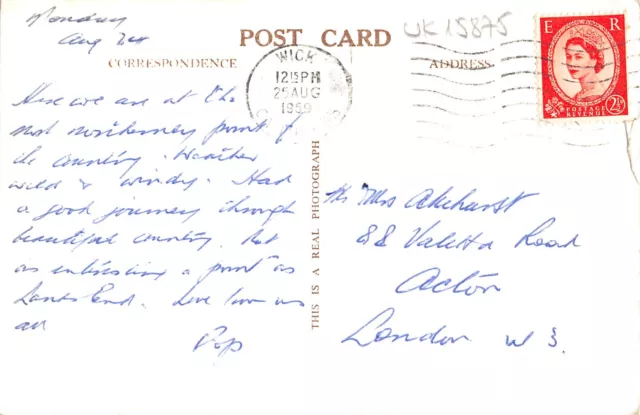 Monday
Aug 24
POST CARD
UK 15875
CORRESPONDENCE
ADDRESS
WICK
12 15 PM
25 AUG
1959
E R
POSTAGE
REVENUE
2½D
Here we are at the
most northerney point of
the country. Weather
wild & windy. Had
a good journey through
beautiful country. Not
as interesting a point as
Lands End. Love from us
all
Pop
THIS IS A REAL PHOTOGRAPH
Mr Mrs Akehurst
88 Valetta Road
Acton
London W 3.